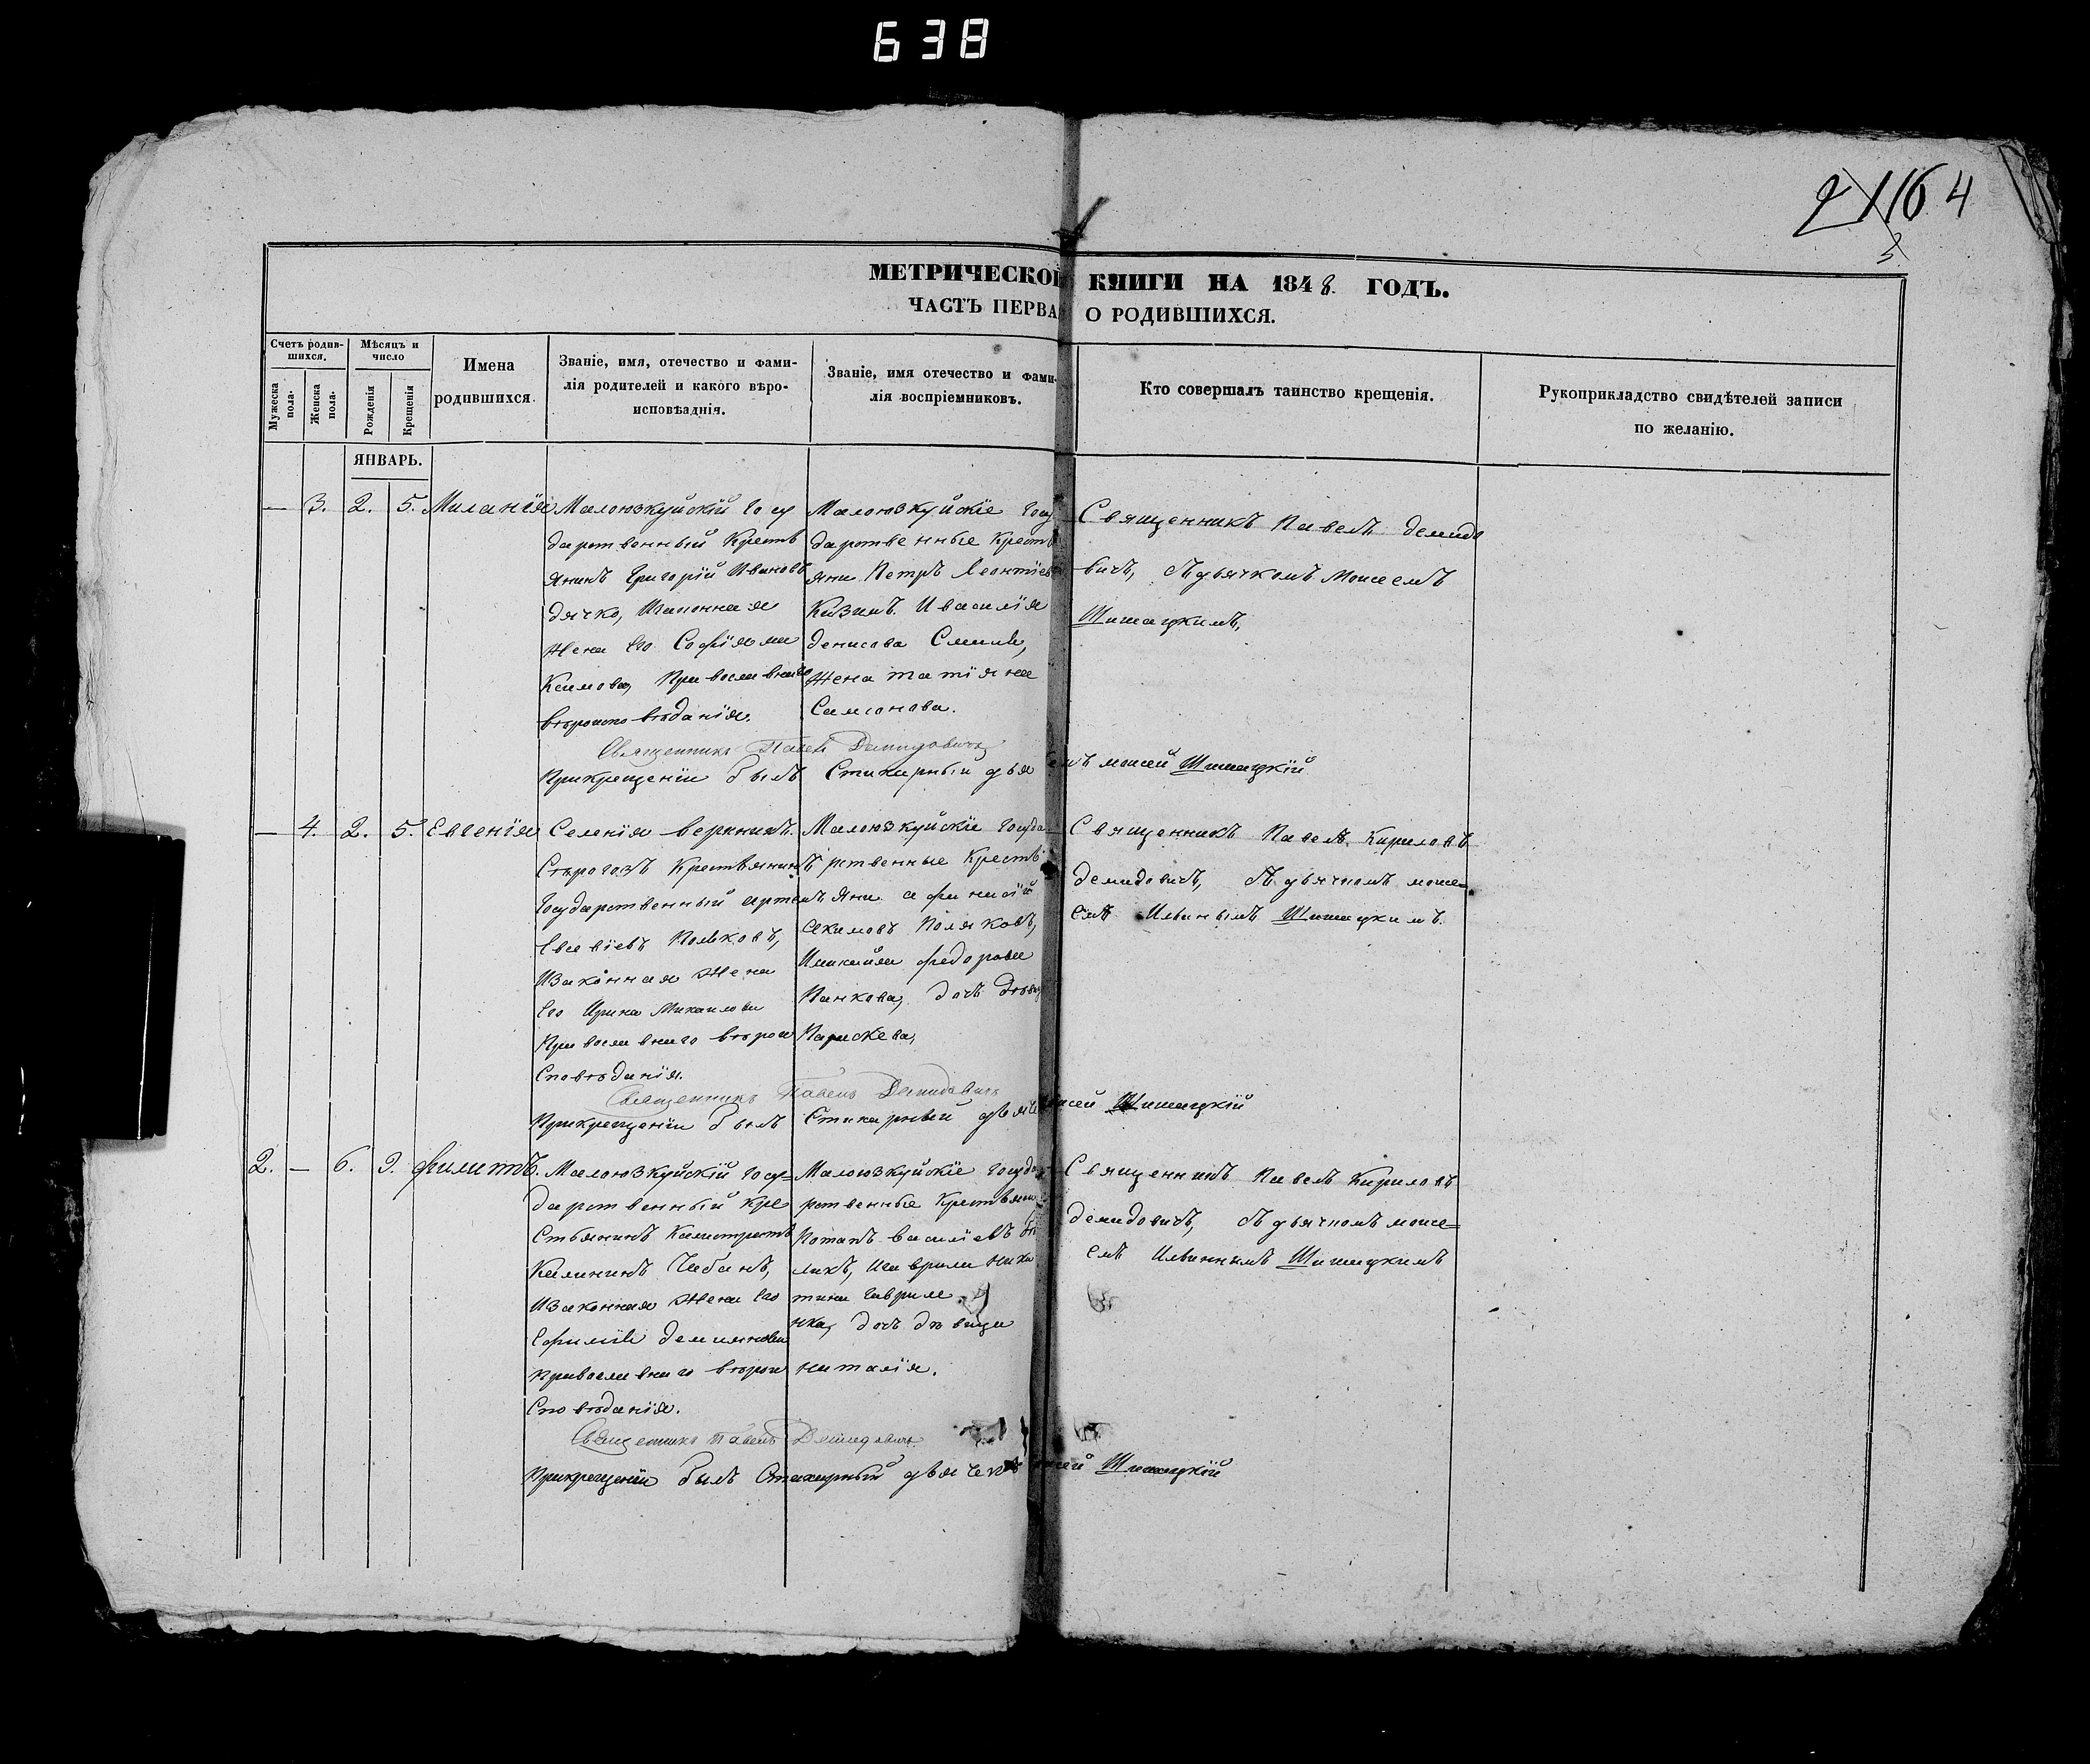 638
4
МЕТРИЧЕСКОЙ КНИГИ НА 1848. ГОДЪ.
ЧАСТЬ ПЕРВАЯ О РОДИВШИХСЯ.
Счетъ родив-
шихся.
Мужеска
пола.
Женска
пола.
Мѣсяцъ и
число
Рожденія
Крещенія
Имена
родившихся.
Званіе, имя, отечество и фами-
лія родителей и какого вѣро-
исповѣданія.
Званіе, имя отечество и фами-
лія воспріемниковъ.
Кто совершалъ таинство крещенія.
Рукоприкладство свидѣтелей записи
по желанію.
ЯНВАРЬ.
— 3. 2. 5. Миланія
Малоюзкуйскій Госу
дарственный Кресть
янинъ Григорій Ивановъ
Дячко, Изаконная
жена его Софія ма
ксимова, Православнаго
вѣроисповѣданія.
Малоюзкуйскіе Госу
дарственные Кресть
яни Петръ Леонтіевъ
Кизимъ. И василія
денисова
жена татіяна
Самсонова.
Священникъ Павелъ демидо
вичъ, съ дьячкомъ Моисеемъ
Шишацкимъ,
Священникъ Павелъ Демидовичъ
Прикрещеніи былъ Стихарный дьячекъ моисей Шишацкій
— 4. 2. 5. Евгенія
Селенія верхнихъ.
Сѣрогозъ Крестьянинъ
Государственный Артемъ
Евсевіевъ Поляковъ,
Изаконная жена
его Ирина Михаилова
Православнаго вѣрои
сповѣданія.
Малоюзкуйскіе Госуда
рственные Кресть
яни афанасій
Екимовъ Поляковъ,
федорова
Панкова, дочь дѣвица
Параскева,
Священникъ Павелъ Кириловъ
демидовичъ, съ дьячкомъ моисе=
емъ Ильинымъ Шишацкимъ.
Священникъ Павелъ Демидовичъ
Прикрещеніи былъ Стихарный дьячекъ моисей Шишацкій
2. — 6. 9. Филиппъ.
Малоюзкуйскій Госу=
дарственный кре
стьянинъ Калистратъ
Калининъ Чабанъ,
Изаконная жена его
Ефимія демьянова
православнаго вѣрои
сповѣданія.
Малоюзкуйскіе Госуда
рственные Крестьяни
Потапъ василіевъ
никі
тина Гавриле
нка, дочь дѣвица
наталія.
Священникъ Павелъ Кириловъ
демидовичъ, съ дьячкомъ моисе=
емъ Ильиннымъ Шишацкимъ
Священникъ Павелъ Демидовичъ
Прикрещеніи былъ Стихарный дьячекъ моисей Шишацкій